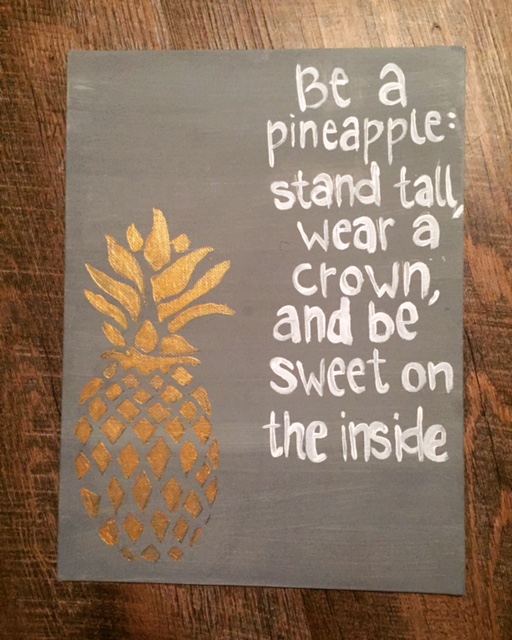 Be a
pineapple:
stand tall,
wear a
crown,
and be
sweet on
the inside